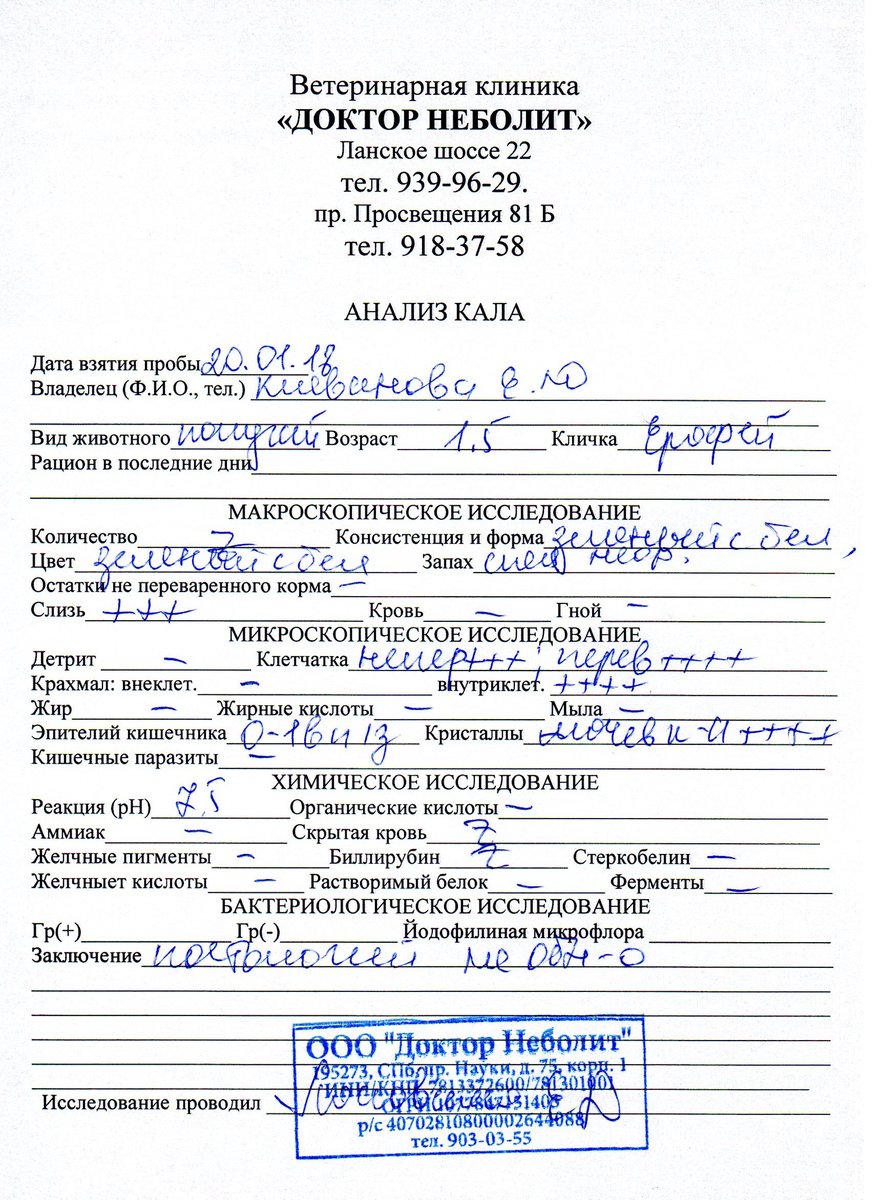 Ветеринарная клиника
«ДОКТОР НЕБОЛИТ»
Ланское шоссе 22
тел. 939-96-29.
пр. Просвещения 81 Б
тел. 918-37-58
АНАЛИЗ КАЛА
Дата взятия пробы 20.01.18
Владелец (Ф.И.О., тел.) Е.Ю
Вид животного попугай Возраст 1,5 Кличка Ерофей
Рацион в последние дни
МАКРОСКОПИЧЕСКОЕ ИССЛЕДОВАНИЕ
Количество Консистенция и форма зеленый с бел,
Цвет зеленый с бел Запах спец неор.
Остатки не переваренного корма —
Слизь +++ Кровь — Гной —
МИКРОСКОПИЧЕСКОЕ ИССЛЕДОВАНИЕ
Детрит — Клетчатка непер+++; перев ++++
Крахмал: внеклет. — внутриклет. ++++
Жир — Жирные кислоты — Мыла —
Эпителий кишечника 0-1 в п/з Кристаллы мочев к-ы ++++
Кишечные паразиты —
ХИМИЧЕСКОЕ ИССЛЕДОВАНИЕ
Реакция (pH) 7,5 Органические кислоты —
Аммиак — Скрытая кровь
Желчные пигменты — Биллирубин Стеркобелин —
Желчныет кислоты — Растворимый белок — Ферменты —
БАКТЕРИОЛОГИЧЕСКОЕ ИССЛЕДОВАНИЕ
Гр(+) Гр(-) Йодофилиная микрофлора
Заключение патологий не обн-о
ООО "Доктор Неболит"
195273, СПб, пр. Науки, д. 75, корп. 1
ИНН/КПП 7813372600/781301001
Исследование проводил
ОГРН
р/с 40702810800002644088
тел. 903-03-55